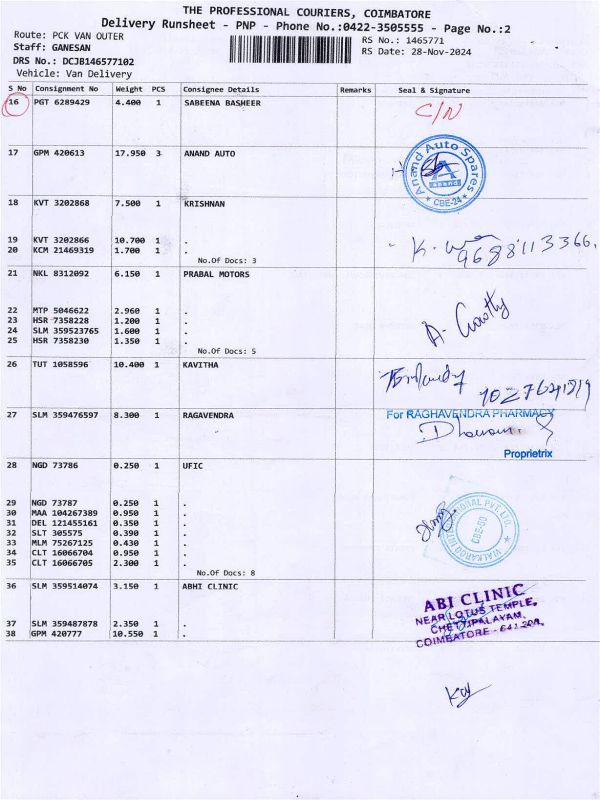 THE PROFESSIONAL COURIERS, COIMBATORE
Delivery Runsheet - PNP - Phone No.:0422-3505555 - Page No.:2
Route: PCK VAN OUTER
RS No.: 1465771
Staff: GANESAN
RS Date: 28-Nov-2024
DRS No.: DCJB146577102
Vehicle: Van Delivery
S No Consignment No Weight PCS Consignee Details Remarks Seal & Signature
16 PGT 6289429 4.400 1 SABEENA BASHEER C/N
17 GPM 420613 17.950 3 ANAND AUTO
Anand Auto Spares
CBE-24
18 KVT 3202868 7.500 1 KRISHNAN
19 KVT 3202866 10.700 1 .
20 KCM 21469319 1.700 1 .
9688113366
No.Of Docs: 3
21 NKL 8312092 6.150 1 PRABAL MOTORS
22 MTP 5046622 2.960 1 .
23 HSR 7358228 1.200 1 .
24 SLM 359523765 1.600 1 .
25 HSR 7358230 1.350 1 .
No.Of Docs: 5
26 TUT 1058596 10.400 1 KAVITHA
27 SLM 359476597 8.300 1 RAGAVENDRA
For RAGHAVENDRA PHARMACY
Proprietrix
28 NGD 73786 0.250 1 UFIC
29 NGD 73787 0.250 1 .
30 MAA 104267389 0.950 1 .
31 DEL 121455161 0.350 1 .
32 SLT 305575 0.390 1 .
33 MLM 75267125 0.430 1 .
34 CLT 16066704 0.950 1 .
35 CLT 16066705 2.300 1 .
No.Of Docs: 8
36 SLM 359514074 3.150 1 ABHI CLINIC
ABI CLINIC
NEAR LOTUS TEMPLE,
CHETTIPALAYAM,
37 SLM 359487878 2.350 1 .
38 GPM 420777 10.550 1 .
COIMBATORE - 641 201.